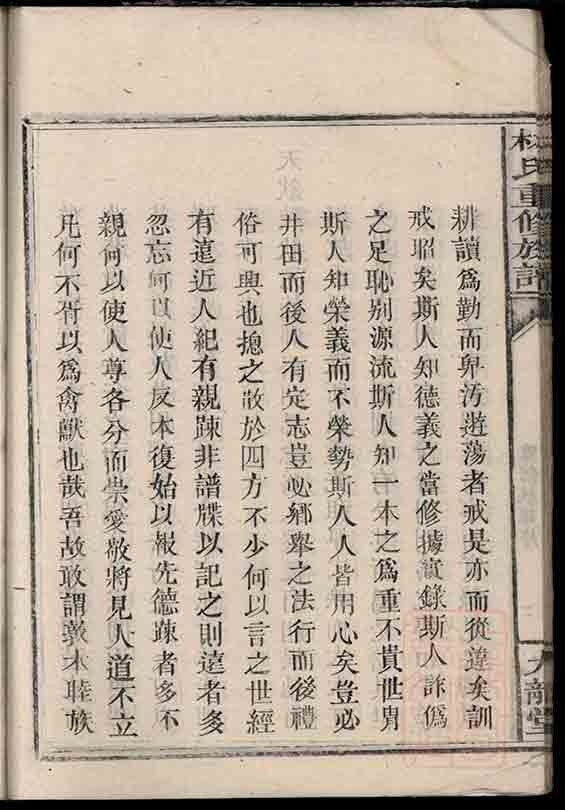 氏重修族譜
耕讀爲勤而卑汚遊蕩者戒是亦而從違矣訓
戒昭矣斯人知德義之當修據實錄斯人詐僞
之足恥别源流斯人知一本之爲重不貴世胄
斯人知榮義而不榮勢斯人人皆用心矣豈必
井田而後人有定志豈必鄉舉之法行而後禮
俗可興也摠之散於四方不少何以言之世經
有遠近人紀有親踈非譜牒以記之則遠者多
忽忘何以使人反本復始以報先德踈者多不
親何以使人尊各分而崇愛敬將見人道不立
凡何不胥以爲禽獸也哉吾故敢謂敦本睦族
龍堂